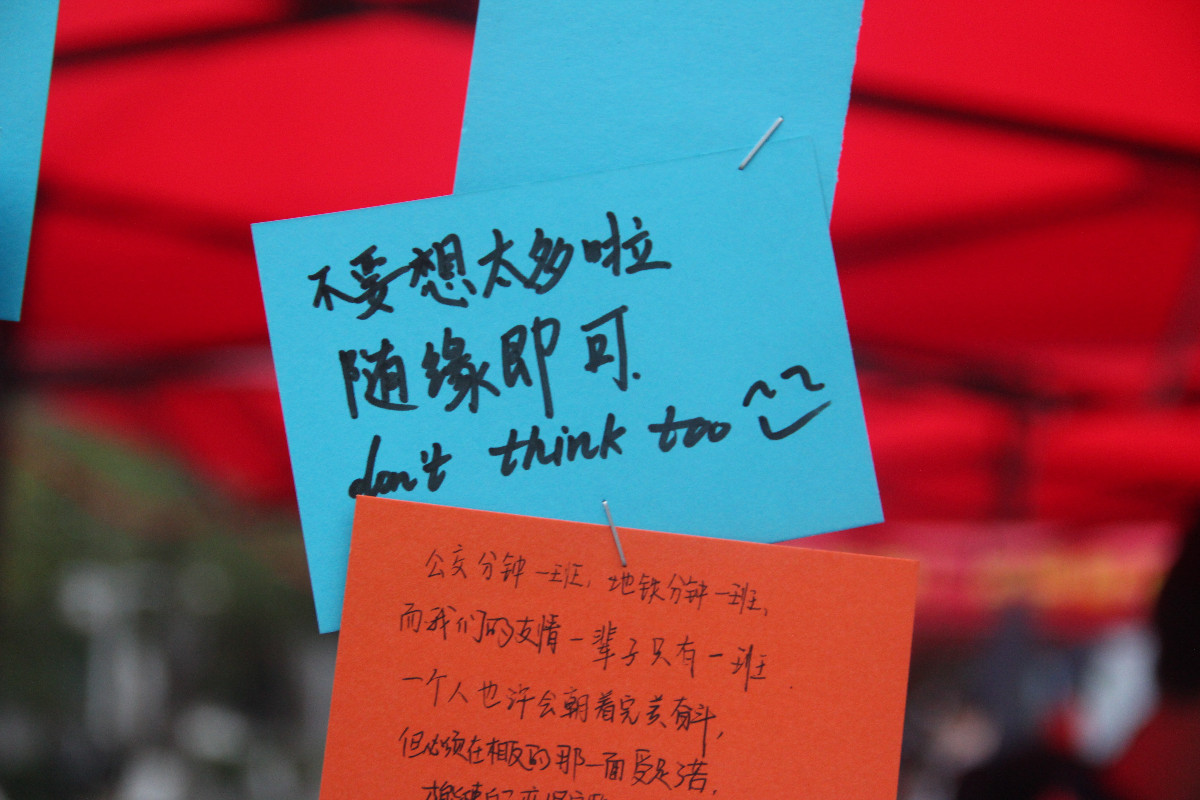 不要想太多啦
随缘即可.
don't think too
公交分钟一班,地铁分钟一班,
而我们的友情一辈子只有一班
一个人也许会朝着完美奋斗,
但必须在相反的那一面受足苦,